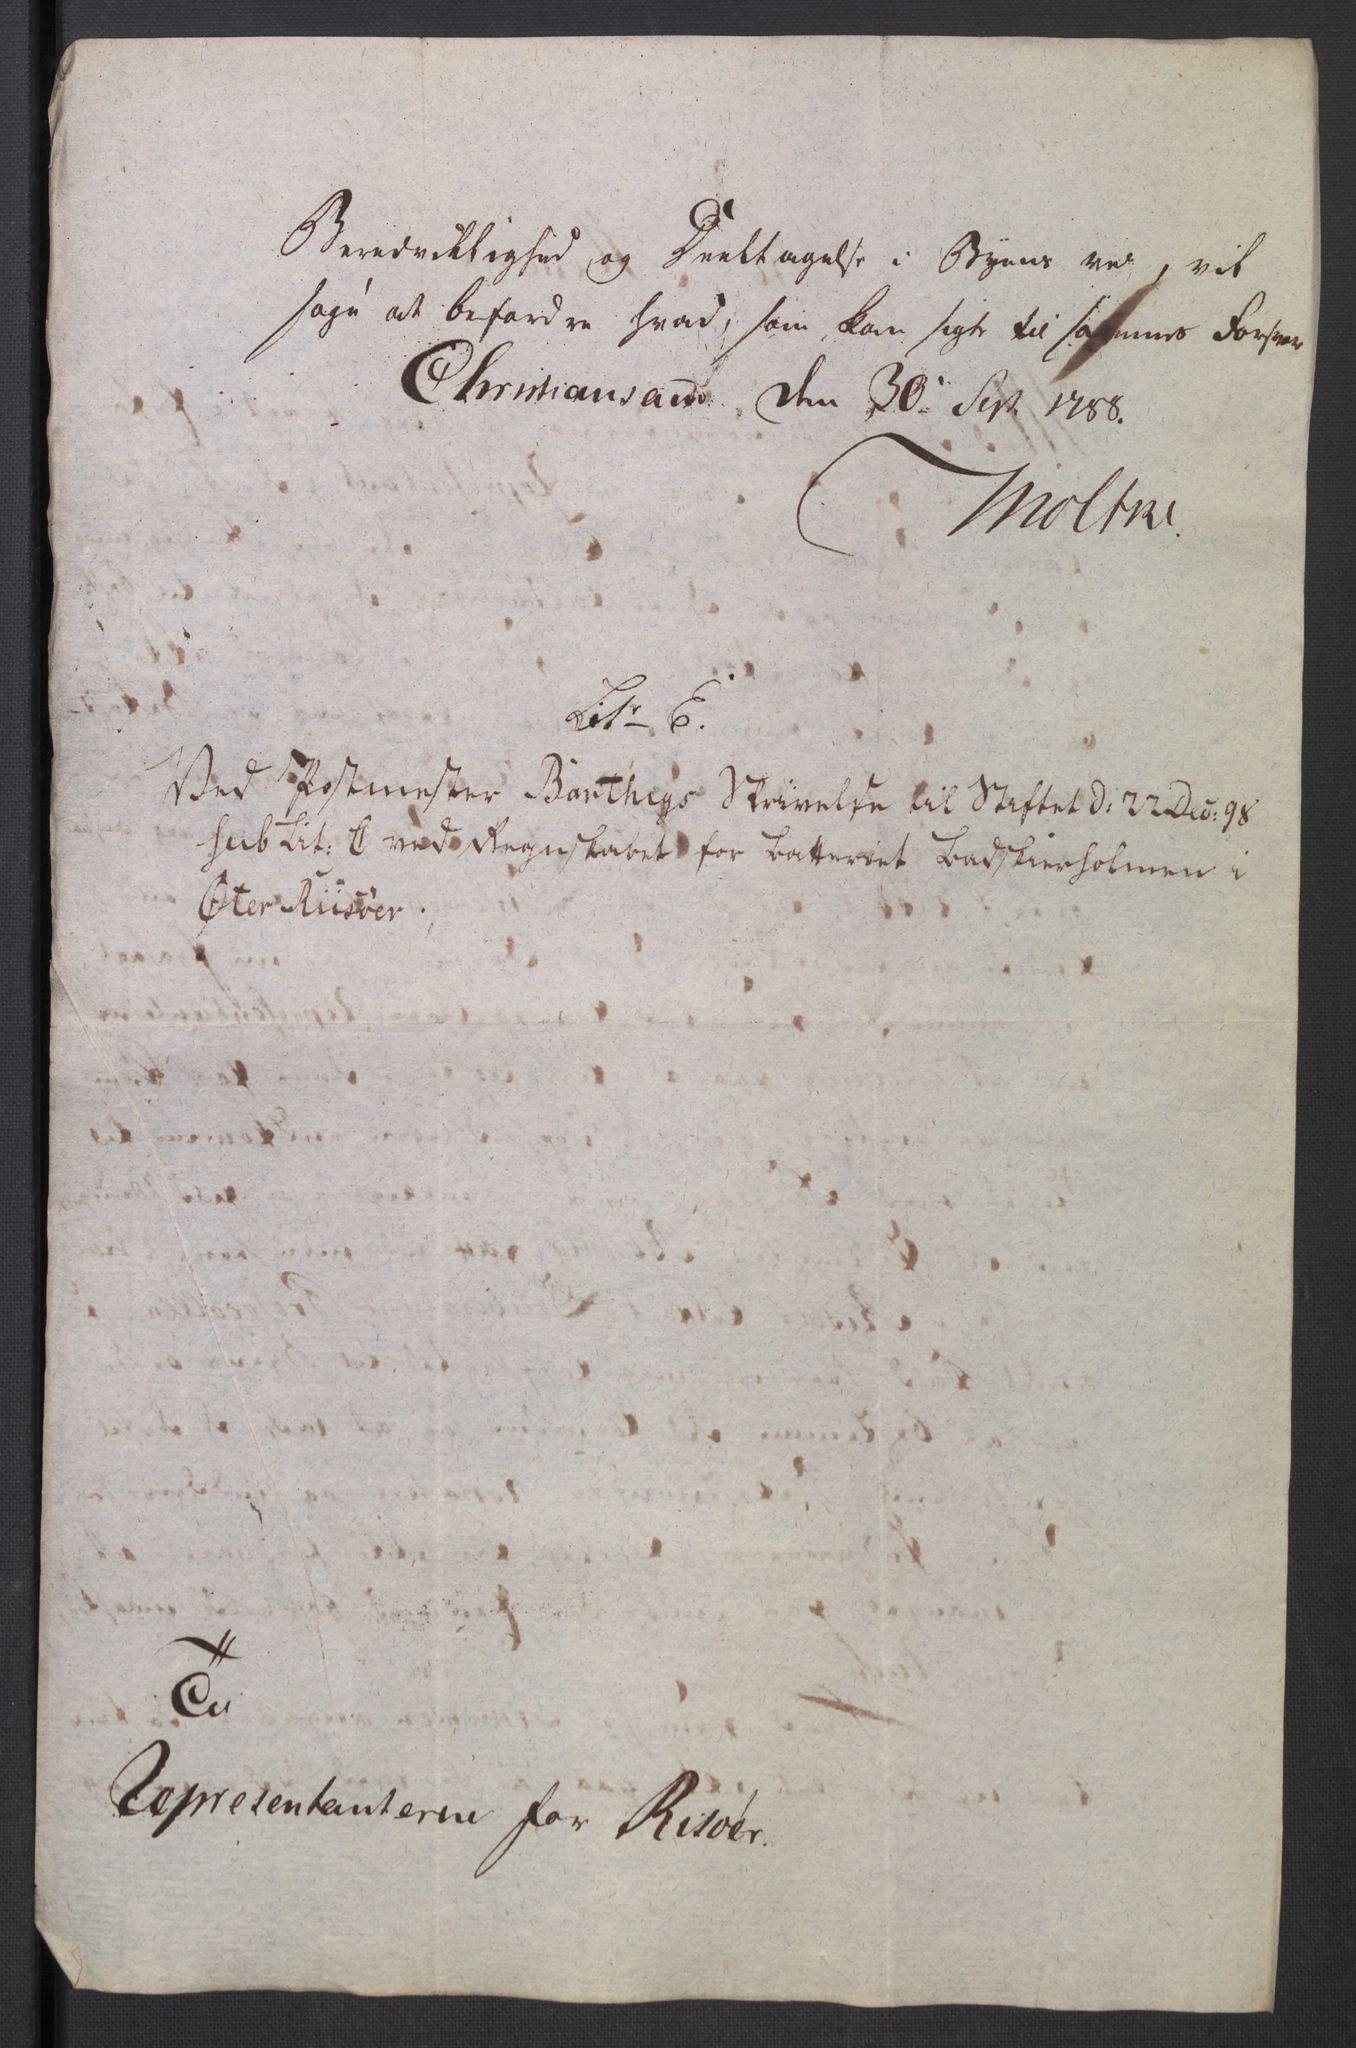 Beredvillighed og Deeltagelse i Byens vel, vil
søge at befordre hvad, som kan sigte til sammes Forsvar
Christiansand den 30. Sept 1788.
Moltke.
Litr. E.
Ved Postmester Barthigs Skrivelse til Stiftet d: 22 Dec: 98
sub Lit: C ved Regnskabet for Batteriet Badskierholmen i
Øster Riisøer.
Til
Representanterne for Risøer.